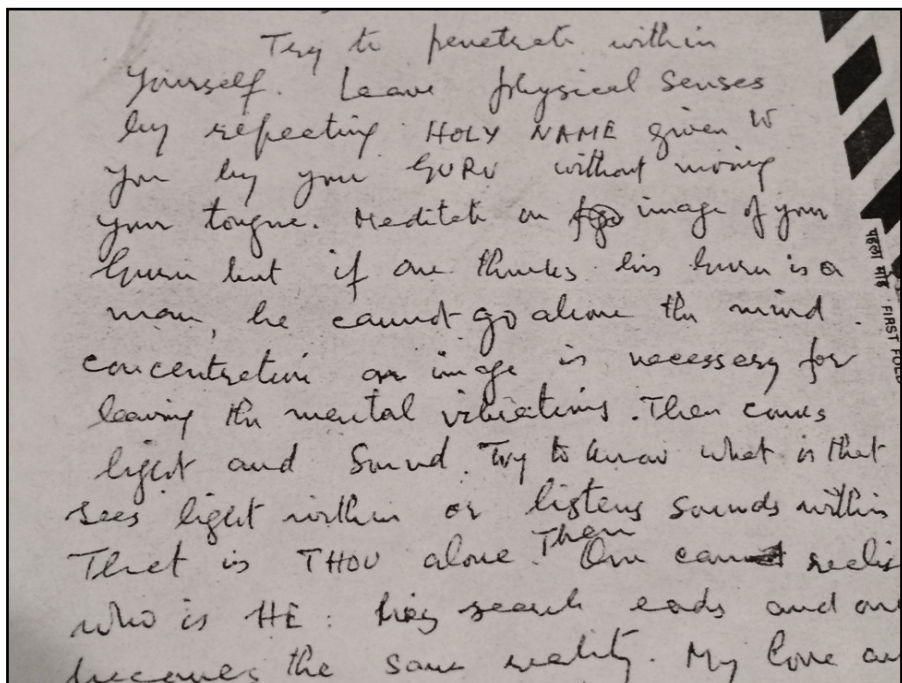 Try to penetrate within
Yourself. Leave physical senses
by repeating HOLY NAME given to
you by you GURU without moving
your tongue. Meditate on image of your
Guru but if one thinks his Guru is a
man, he cannot go above the mind.
concentration on image is necessary for
leaving the mental vibrations. Then comes
light and Sound. Try to know what is that
sees light within or listens sounds within
That is THOU alone. Then One can realis
who is HE: search ends and one
becomes the same reality. My love an
पहला मोड़ FIRST FOLD